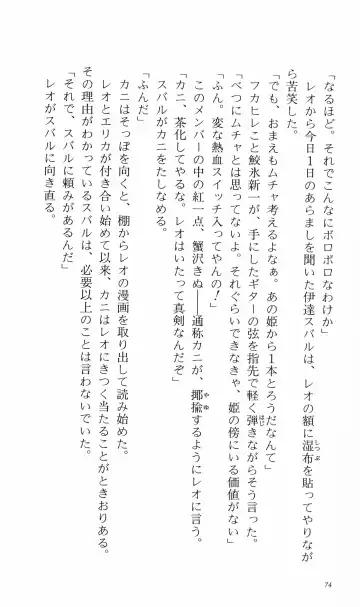 「なるほど。それでこんなにボロボロなわけか」
レオから今日1日のあらましを聞いた伊達スバルは、レオの額に湿布を貼ってやりなが
ら苦笑した。
「でも、おまえもムチャ考えるよなぁ。あの姫から1本とろうだなんて」
フカヒレこと鮫氷新一が、手にしたギターの弦を指先で軽く弾きながらそう言った。
「べつにムチャとは思ってないよ。それぐらいできなきゃ、姫の傍にいる価値がない」
「ふん。変な熱血スイッチ入ってやんの！」
このメンバーの中の紅一点、蟹沢きぬ――通称カニが、揶揄するようにレオに言う。
「カニ、茶化してやるな。レオはいたって真剣なんだぞ」
スバルがカニをたしなめる。
「ふんだ」
カニはそっぽを向くと、棚からレオの漫画を取り出して読み始めた。
レオとエリカが付き合い始めて以来、カニはレオにきつく当たることがときおりある。
その理由がわかっているスバルは、必要以上のことは言わないでいた。
「それで、スバルに頼みがあるんだ」
レオがスバルに向き直る。
74